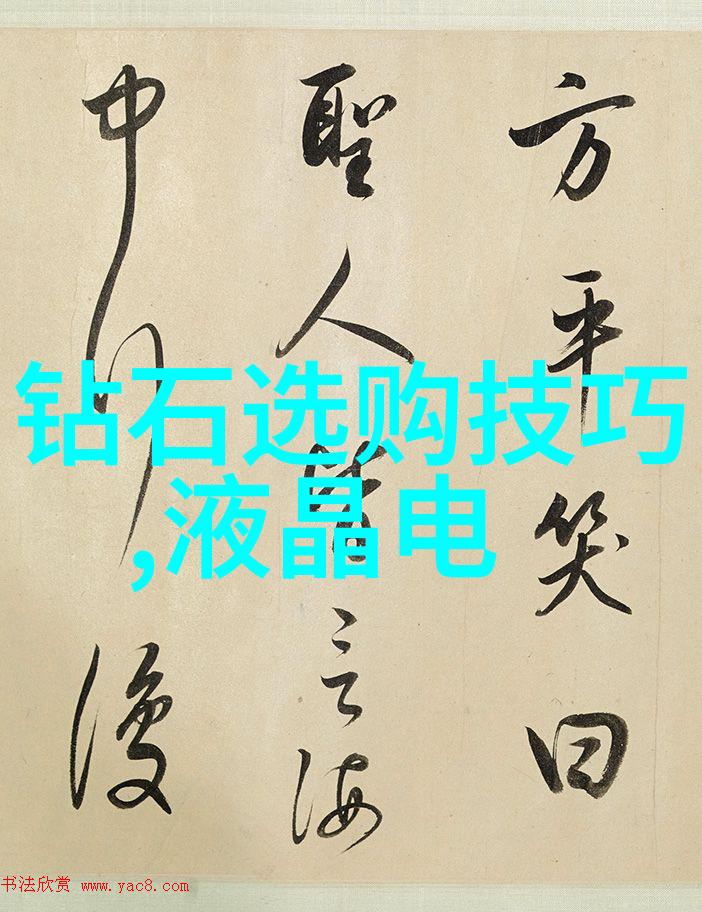 方平笑曰
聖人皆言海
中行復
钻石选购技巧
,液晶电
书法欣赏 www.yac8.com